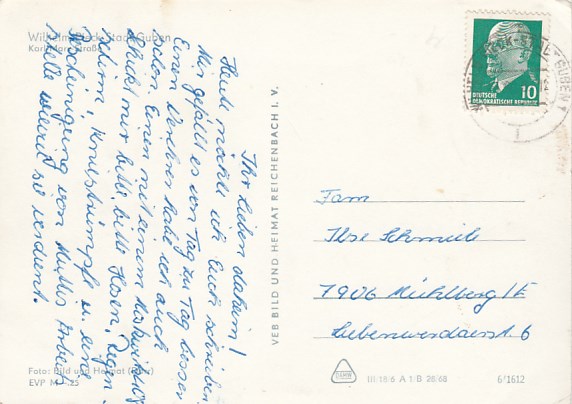 Wilhelm-Pieck-Stadt Guben
Karl-Marx-Straße
Ihr Lieben daheim!
Heute möchte ich Euch schreiben.
Mir gefällt es von Tag zu Tag besser.
Einen Verehrer habe ich auch
schon. Einen mit einem Moskwitsch.
Schickt mir bitte, bitte Hosen, Regen-
schirm, Kniestrümpfe u. eine
Bescheinigung von Muttis Arbeits-
stelle wieviel sie verdient.
Foto: Bild und Heimat
EVP M -,25
VEB BILD UND HEIMAT REICHENBACH I. V.
10
DEUTSCHE
DEMOKRATISCHE REPUBLIK
GUBEN 1
Fam
Ilse Schmidt
7906 Mühlberg/E
Liebenwerdaerst 6
III/18/6 A 1/B 28/68
6/1612